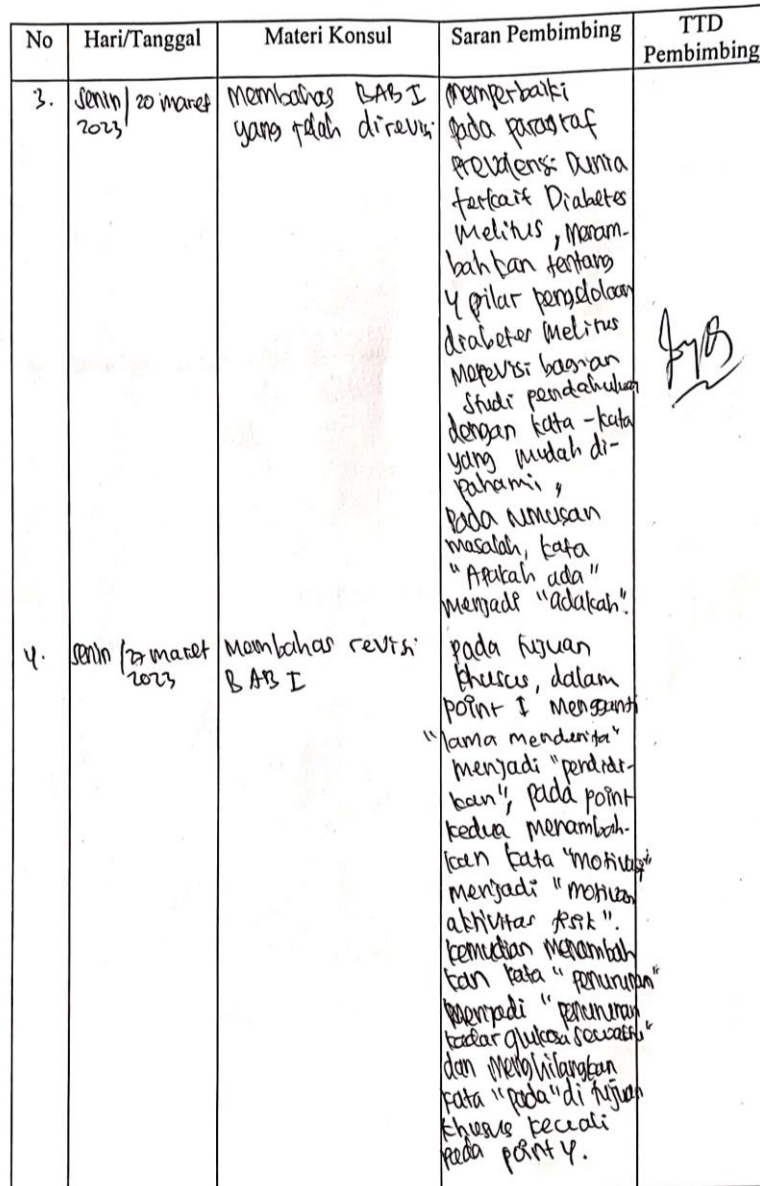 No Hari/Tanggal Materi Konsul Saran Pembimbing TTD Pembimbing
3.
Senin/20 maret
2023
Membahas BAB I
yang telah direvisi
Memperbaiki
pada paragraf
Prevalensi Dunia
terkait Diabetes
Melitus, menam-
bahkan tentang
4 pilar pengelolaan
diabetes Melitus
Merevisi bagian
Studi pendahuluan
dengan kata-kata
yang mudah di-
pahami,
pada rumusan
masalah, kata
"Apakah ada"
menjadi "adakah".
4.
Senin/27 maret
2023
Membahas revisi
BAB I
pada tujuan
khusus, dalam
point 1 mengganti
"lama menderita"
menjadi "pendidi-
kan", pada point
kedua menambah-
kan kata "motivasi"
menjadi "motivasi
aktivitas fisik".
kemudian menambah
kan kata "penurunan"
menjadi "penurunan
kadar glukosa sewaktu"
dan menghilangkan
kata "pada" di tujuan
khusus kecuali
pada point 4.